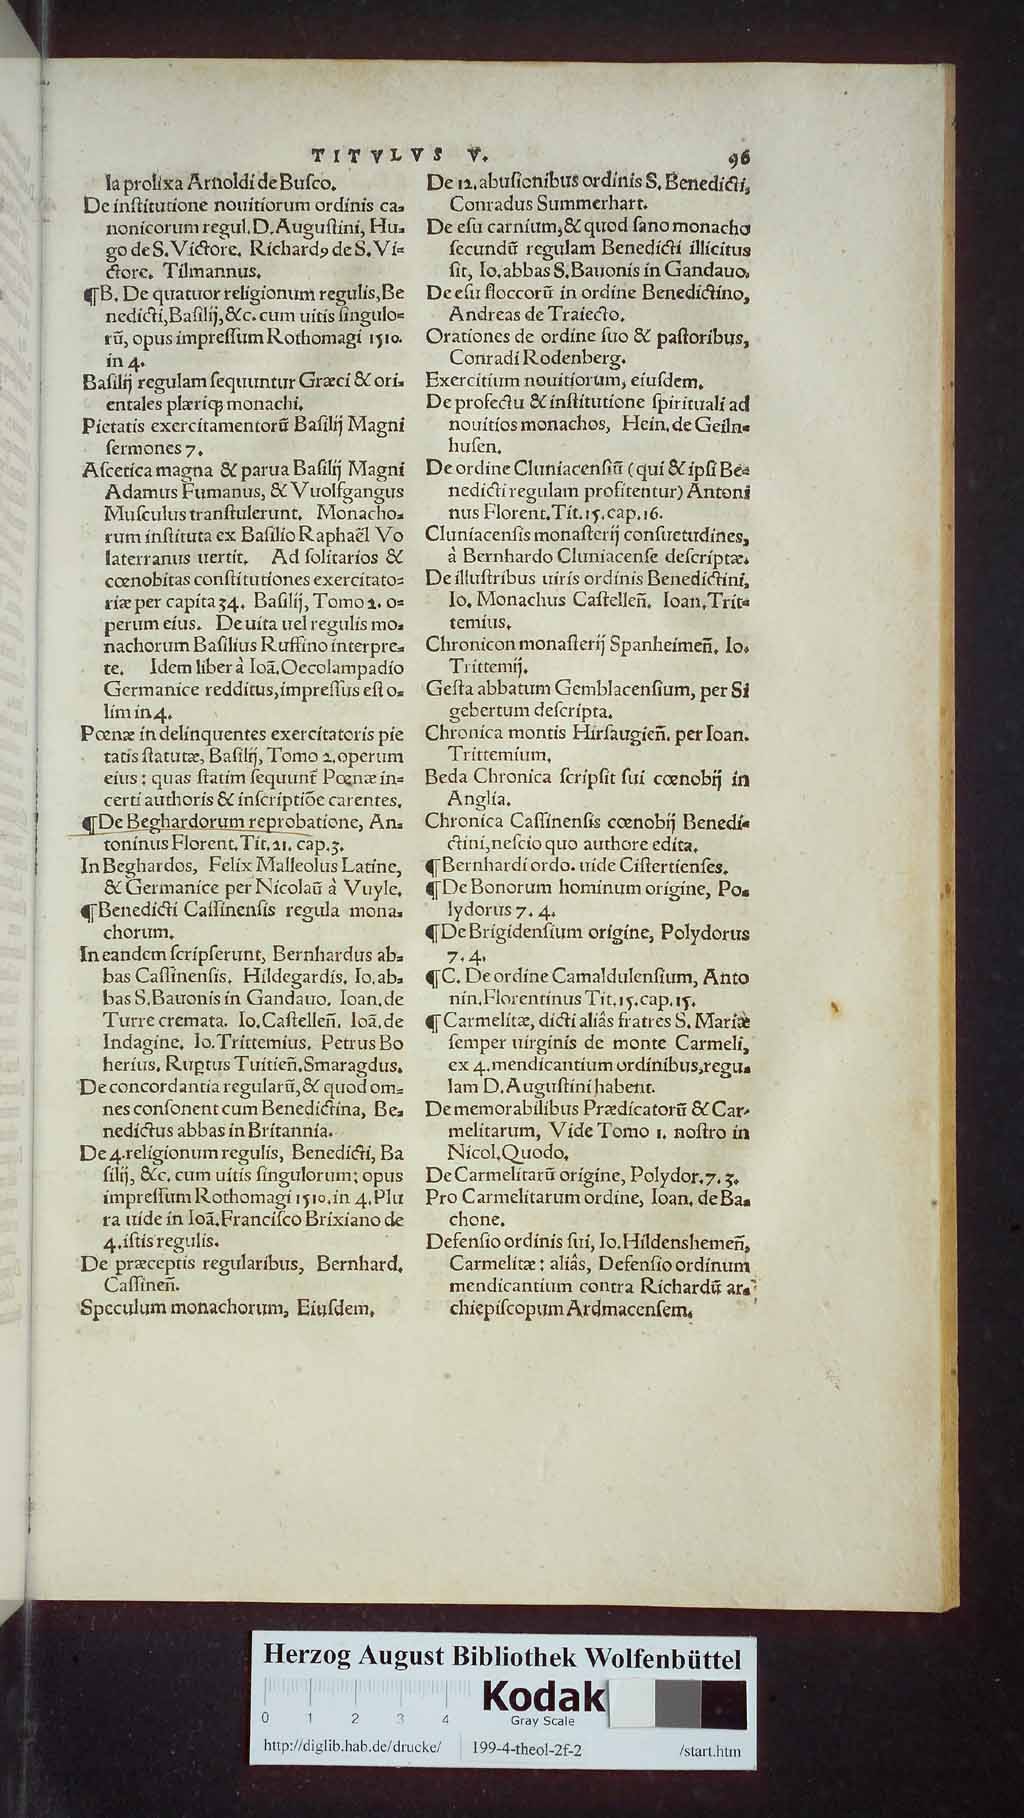 TITVLVS V. 96
la prolixa Arnoldi de Busco.
De institutione nouitiorum ordinis ca-
nonicorum regul. D. Augustini, Hu-
go de S. Victore. Richardꝰ de S. Vi-
ctore. Tilmannus.
¶B. De quatuor religionum regulis, Be
nedicti, Basilij, &c. cum uitis singulo-
rũ, opus impressum Rothomagi 1510.
in 4.
Basilij regulam sequuntur Græci & ori-
entales plæriqꝫ monachi.
Pietatis exercitamentorũ Basilij Magni
sermones 7.
Ascetica magna & parua Basilij Magni
Adamus Fumanus, & Vuolfgangus
Musculus transtulerunt. Monacho-
rum instituta ex Basilio Raphaël Vo
laterranus uertit. Ad solitarios &
cœnobitas constitutiones exercitato-
riæ per capita 34. Basilij, Tomo 2. o-
perum eius. De uita uel regulis mo-
nachorum Basilius Ruffino interpre-
te. Idem liber à Ioã. Oecolampadio
Germanice redditus, impressus est o-
lim in 4.
Pœnæ in delinquentes exercitatoris pie
tatis statutæ, Basilij, Tomo 2. operum
eius: quas statim sequunt̃ Pœnæ in-
certi authoris & inscriptiõe carentes.
¶De Beghardorum reprobatione, An-
toninus Florent. Tit. 21. cap. 3.
In Beghardos, Felix Malleolus Latine,
& Germanice per Nicolaũ à Vuyle.
¶Benedicti Cassinensis regula mona-
chorum.
In eandem scripserunt, Bernhardus ab-
bas Cassinensis. Hildegardis. Io. ab-
bas S. Bauonis in Gandauo. Ioan. de
Turre cremata. Io. Castelleñ. Ioã. de
Indagine. Io. Trittemius. Petrus Bo
herius. Ruptus Tuitieñ. Smaragdus.
De concordantia regularũ, & quod om-
nes consonent cum Benedictina, Be-
nedictus abbas in Britannia.
De 4. religionum regulis, Benedicti, Ba
silij, &c. cum uitis singulorum: opus
impressum Rothomagi 1510. in 4. Plu
ra uide in Ioã. Francisco Brixiano de
4. istis regulis.
De præceptis regularibus, Bernhard.
Cassineñ.
Speculum monachorum, Eiusdem.
De 12. abusionibus ordinis S. Benedicti,
Conradus Summerhart.
De esu carnium, & quod sano monacho
secundũ regulam Benedicti illicitus
sit, Io. abbas S. Bauonis in Gandauo.
De esu floccorũ in ordine Benedictino,
Andreas de Traiecto.
Orationes de ordine suo & pastoribus,
Conradi Rodenberg.
Exercitium nouitiorum, eiusdem.
De profectu & institutione spirituali ad
nouitios monachos, Hein. de Geiln-
husen.
De ordine Cluniacensiũ (qui & ipsi Be-
nedicti regulam profitentur) Antoni
nus Florent. Tit. 15. cap. 16.
Cluniacensis monasterij consuetudines,
à Bernhardo Cluniacense descriptæ.
De illustribus uiris ordinis Benedictini,
Io. Monachus Castelleñ. Ioan. Trit-
temius.
Chronicon monasterij Spanheimeñ. Io.
Trittemij.
Gesta abbatum Gemblacensium, per Si
gebertum descripta.
Chronica montis Hirsaugieñ. per Ioan.
Trittemium.
Beda Chronica scripsit sui cœnobij in
Anglia.
Chronica Cassinensis cœnobij Benedi-
ctini, nescio quo authore edita.
¶Bernhardi ordo. uide Cistertienses.
¶De Bonorum hominum origine, Po-
lydorus 7. 4.
¶De Brigidensium origine, Polydorus
7. 4.
¶C. De ordine Camaldulensium, Anto
nin. Florentinus Tit. 15. cap. 15.
¶Carmelitæ, dicti aliâs fratres S. Mariæ
semper uirginis de monte Carmeli,
ex 4. mendicantium ordinibus, regu-
lam D. Augustini habent.
De memorabilibus Prædicatorũ & Car-
melitarum, Vide Tomo 1. nostro in
Nicol. Quodo.
De Carmelitarũ origine, Polydor. 7. 3.
Pro Carmelitarum ordine, Ioan. de Ba-
chone.
Defensio ordinis sui, Io. Hildenshemeñ.
Carmelitæ: aliâs, Defensio ordinum
mendicantium contra Richardũ ar-
chiepiscopum Ardmacensem.
Herzog August Bibliothek Wolfenbüttel
0 1 2 3 4
Kodak
Gray Scale
http://diglib.hab.de/drucke/ 199-4-theol-2f-2 /start.htm